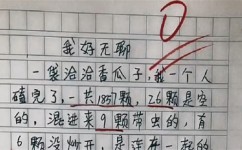 0
我好无聊
一袋洽洽香瓜子,我一个人
嗑完了,一共1857颗,26颗是空
的,混进来9颗带虫的,有
6颗没炒开,是连在一起的